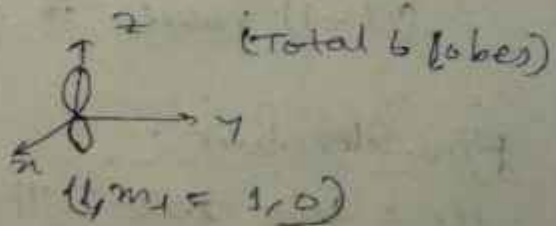 z (Total 6 lobes)
y
x
(l, m₁ = 1, 0)